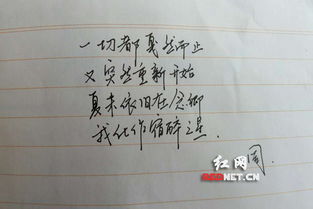 一切都戛然而止
又突然重新开始
夏末依旧在
我化作宿醉之星.
红网
REDNET.CN